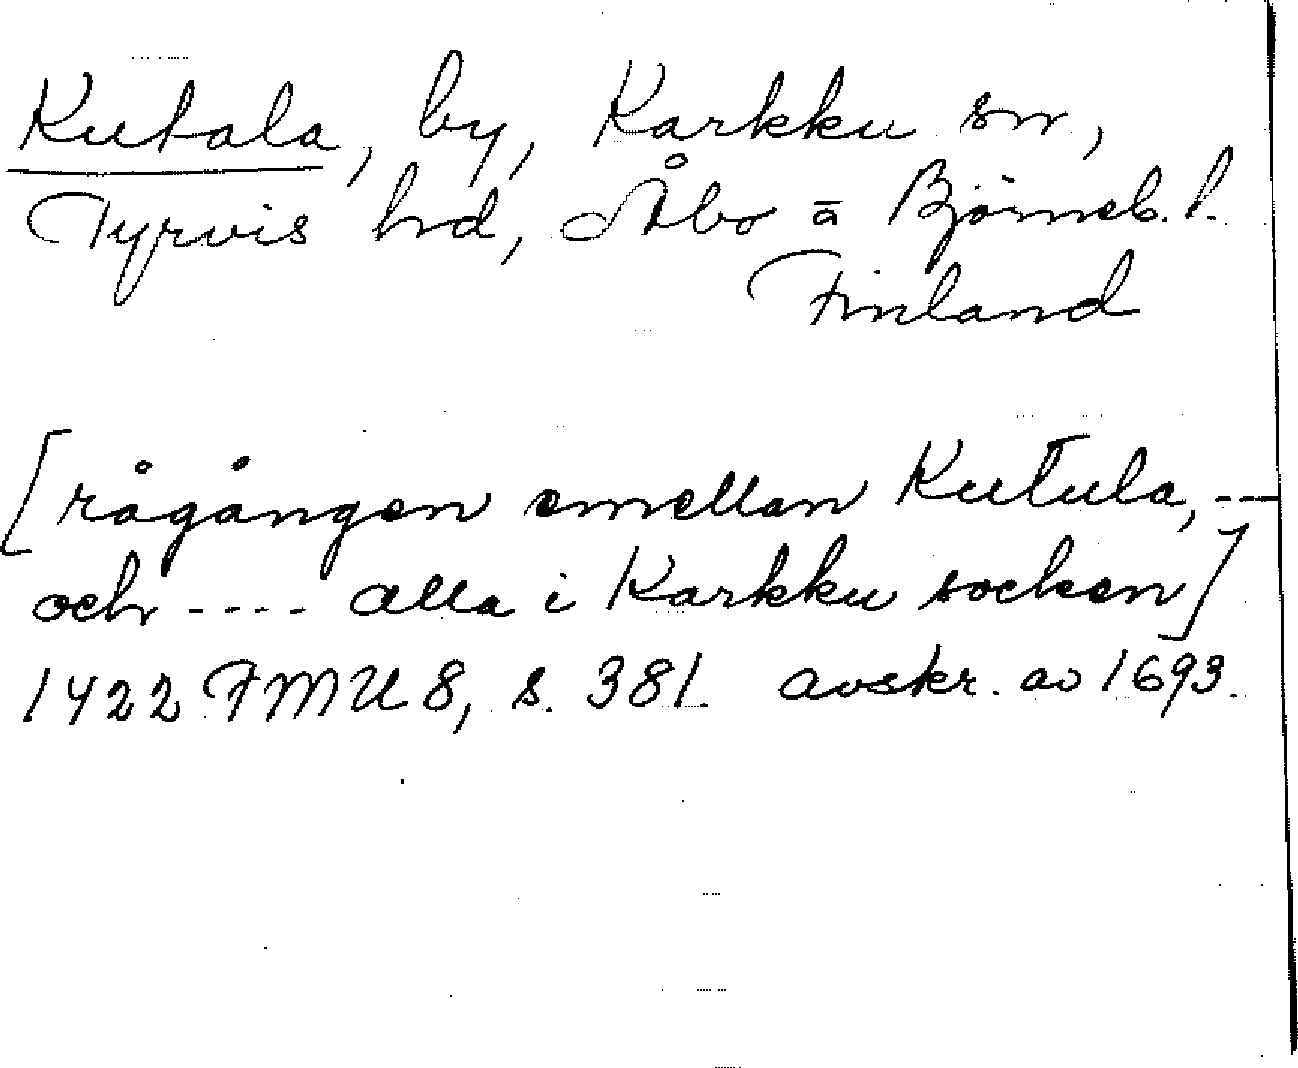 Kutala, by, Karkku sn,
Tyrvis hd, Åbo ä Björneb. l.
Finland
[rågången emellan Kutula, --
och ---- alla i Karkku socken]
1422 FMU 8, s. 381. avskr. av 1693.